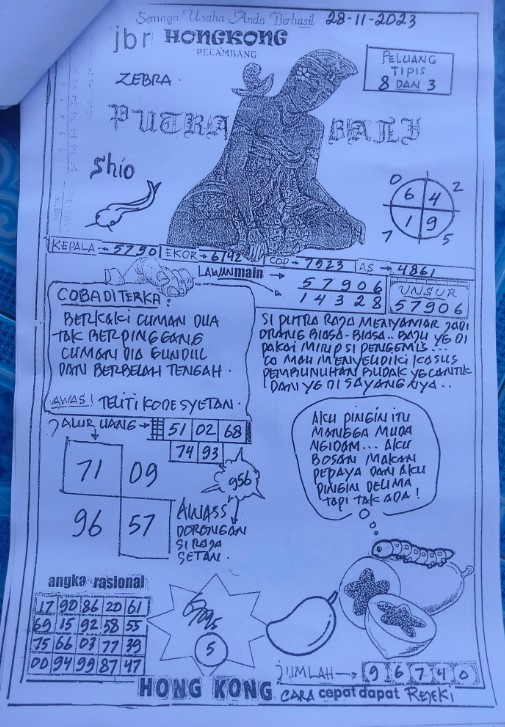 Semoga Usaha Anda Berhasil
28-11-2023
jbr HONGKONG
PELAMBANG
ZEBRA.
PELUANG
TIPIS
8 DAN 3
PUTRA BALI
Shio
0 2
6 4
1 9
7 5
KEPALA → 5790 EKOR → 6142 COP → 7923 AS → 4861
LAWAN main → 57906
14328
UNSUR
57906
COBA DITERKA!
BERKAKI CUMAN DUA
TAK BERPINGGANG
CUMAN DIA GUNDUL
DAN BERBELAH TENGAH.
AWAS! TELITI KODE SYETAN.
SI PUTRA RAJA MENYAMAR JADI
ORANG BIASA-BIASA.. BAJU YG DI
PAKAI MIRIP SI PENGEMIS...
MAU MENYELIDIKI KASUS
PEMBUNUHAN BUDAK YG CANTIK
DAN YG DI SAYANG NYA..
JALUR UANG → 51 02 68
74 93
71 09
96 57
956
AWASS
DORONGAN
SI RAJA
SETAN.
AKU PINGIN ITU
MANGGA MUDA
NGIDAM... AKU
BOSAN MAKAN
PEPAYA DAN AKU
PINGIN DELIMA
TAPI TAK ADA!
angka rasional
17 90 86 20 61
69 15 92 58 55
75 66 03 77 39
00 94 99 87 47
5
JUMLAH → 9 6 7 4 0
HONG KONG CARA cepat dapat REJEKI